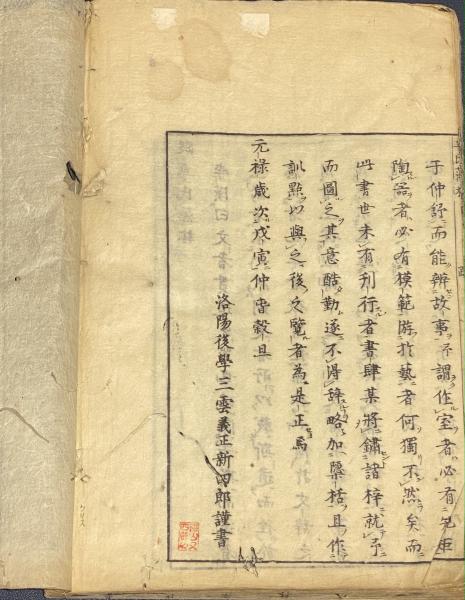 于仲舒而能辨故事不謂作室者必有先正
陶器者必有模範游於藝者何獨不然矣而
此書世未有刊行者書肆某將鏽諸梓就予
而圖之其意酷勤遂不得辞略加檃栝且作
訓點以與之後之覽者為是正焉
元禄歳次戊寅仲春穀旦
洛陽後學三雲義正新四郎謹書